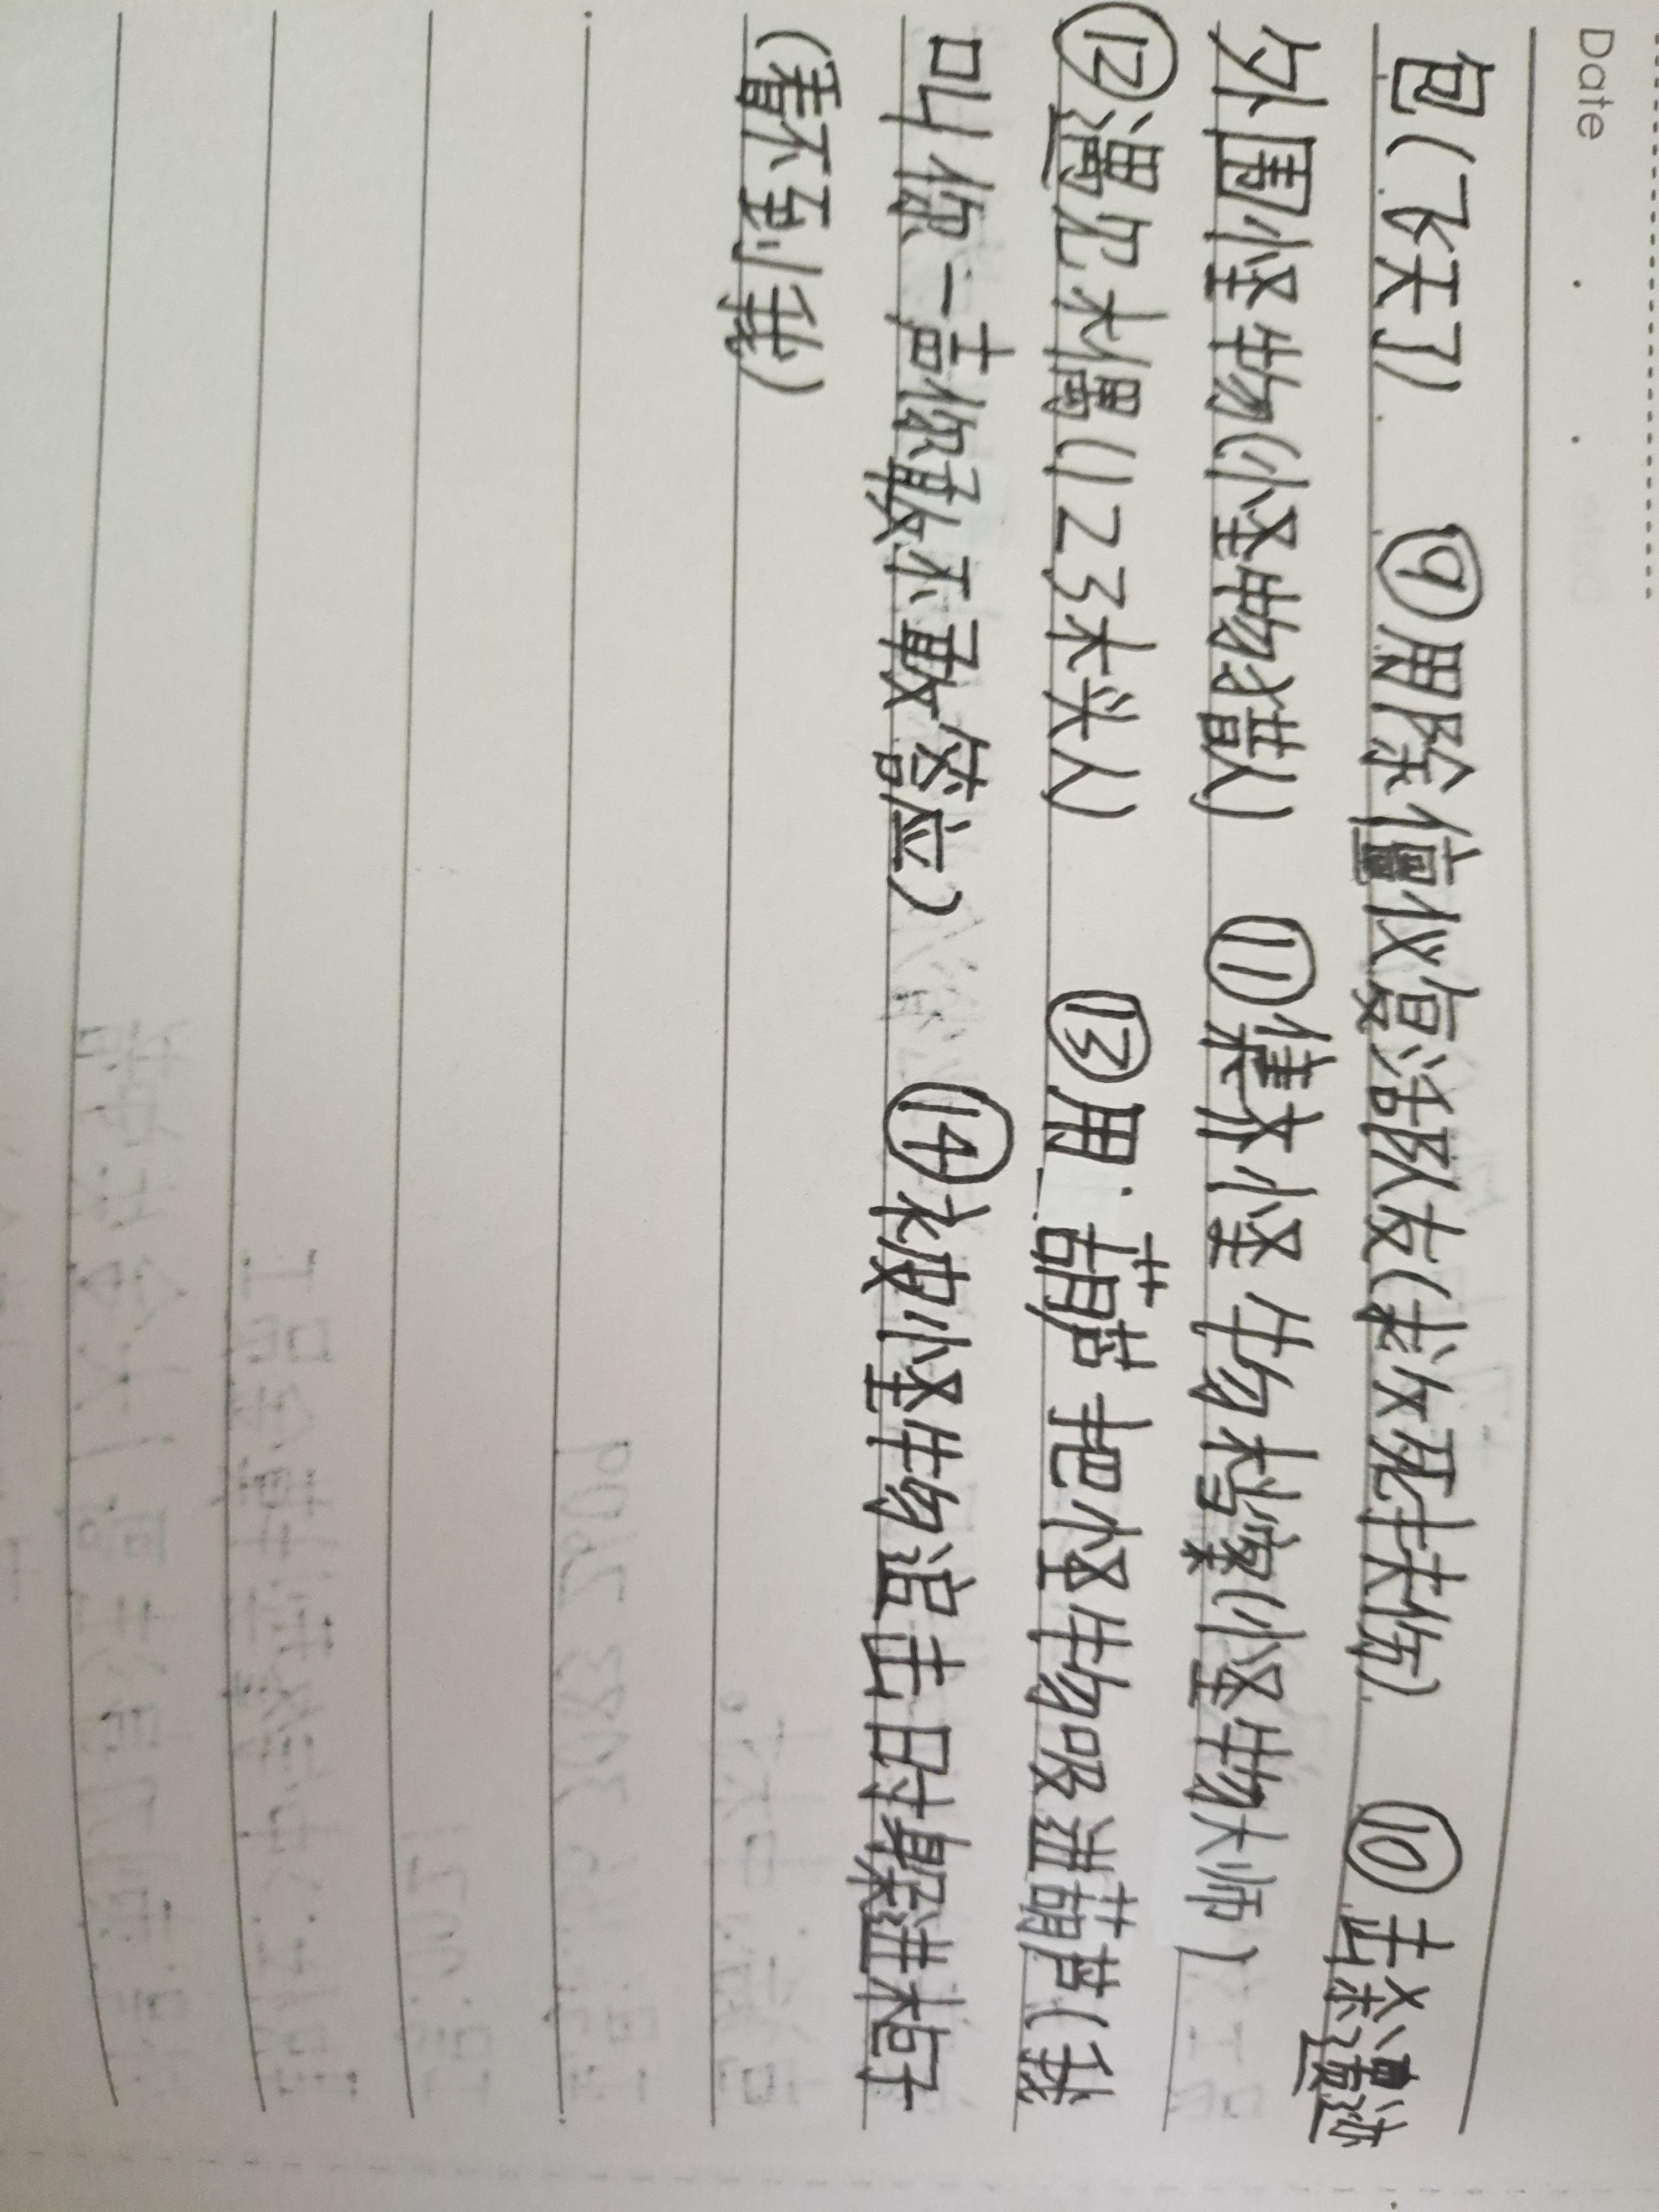 Date
包(飞天了) ⑨用除僵仪复活队友(我没死太伤) ⑩去除遗迹
外围怪物(小怪物猎人) ⑪集齐怪物档案(怪物大师)
⑫遇见木偶(123木头人) ⑬用葫芦把怪物吸进葫芦(我
叫你一声你敢不敢答应) ⑭被怪物追击时躲进柜子
(看不到我)